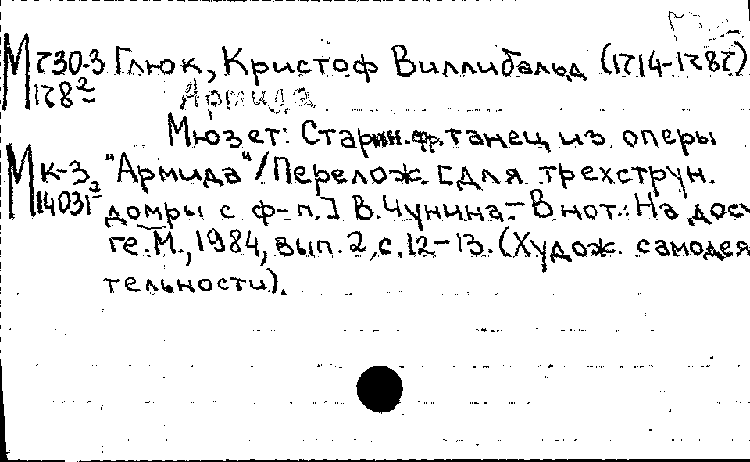 М 730-3 Глюк, Кристоф Виллибальд (1714-1787)
178² Армида
Мюзет: Старин. фр. танец из оперы
М к-3 "Армида" / Перелож. [для трехструн.
14031² домры с ф-п.] В. Чунина. - В нот.: На досу
ге. М., 1984, вып. 2, с. 12-13. (Худож. самодея
тельности).